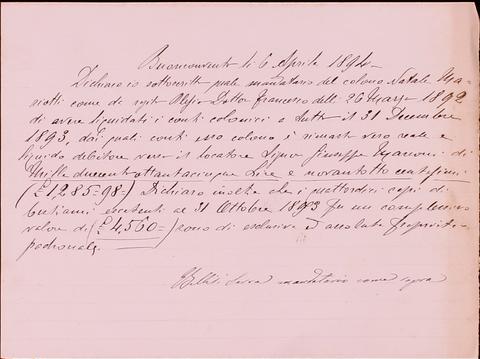 Buonconvento li 6 Aprile 1894
Dichiaro io sottoscritto quale mandatario del colono Natale Ma-
riotti come da rogit Dottor Francesco dell 26 Marzo 1892
di avere liquidati i conti colonici a tutto il 31 Decembre
1893, dai quali conti esso colono è rimasto vero reale e
liquido debitore verso il locatore Signor Giuseppe di
Mille duecento ottantacinque Lire e novantotto centesimi
(£ 1285-98=) Dichiaro inoltre che i quattordici capi di
bestiami esistenti al 31 Ottobre 1893 per un complessivo
valore di (£ 4,560=) sono di esclusiva ed assoluta proprietà
padronale.
mandatario come sopra